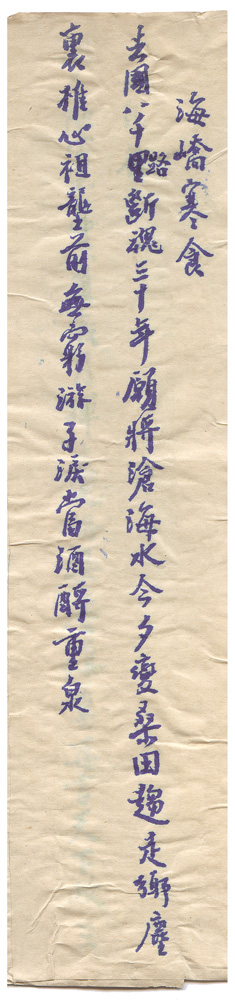 海嶠寒食
去國八千路斷魂三十年願將滄海水今夕變桑田趨走鄉塵
裏椎心祖壟前無窮游子淚當酒酹重泉